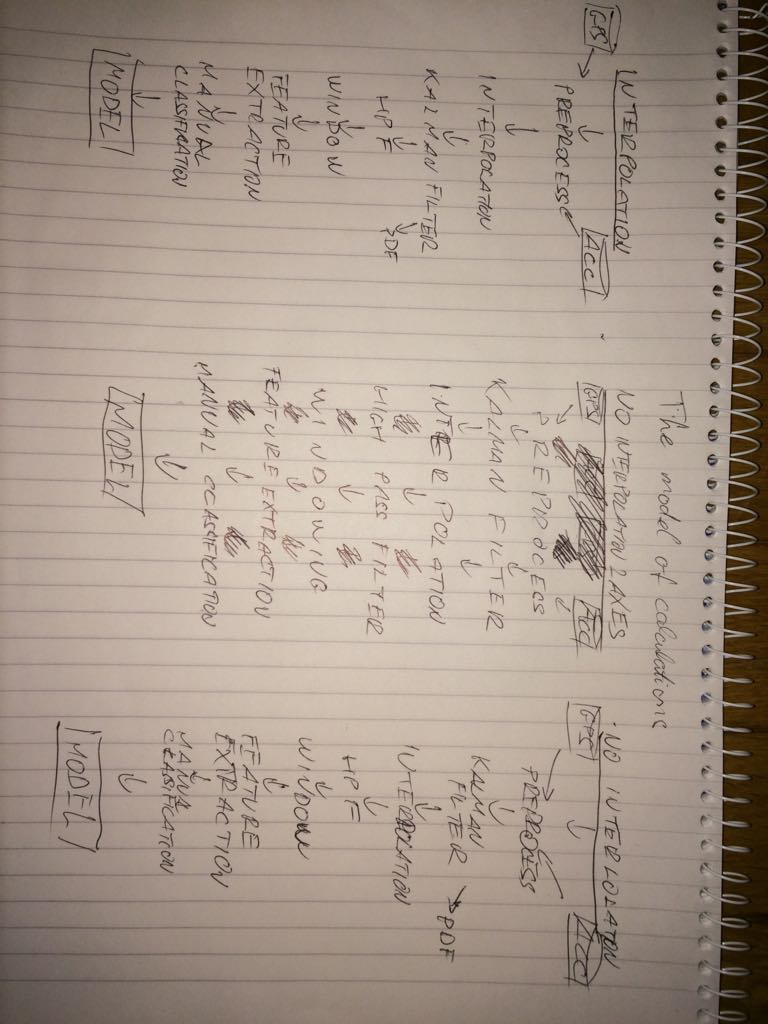 The model of calculations
INTERPOLATION
GPS
ACC
PREPROCESS
INTERPOLATION
KALMAN FILTER
HPF
PDF
WINDOW
FEATURE
EXTRACTION
MANUAL
CLASSIFICATION
MODEL
NO INTERPOLATION 2 AXES
GPS
ACC
PREPROCESS
KALMAN FILTER
INTERPOLATION
HIGH PASS FILTER
WINDOWING
FEATURE EXTRACTION
MANUAL CLASSIFICATION
MODEL
NO INTERLOLATION
GPS
ACC
PREPROCESS
KALMAN
FILTER
PDF
INTERPOLATION
HPF
WINDOW
FEATURE
EXTRACTION
MANUAL
CLASSIFICATION
MODEL